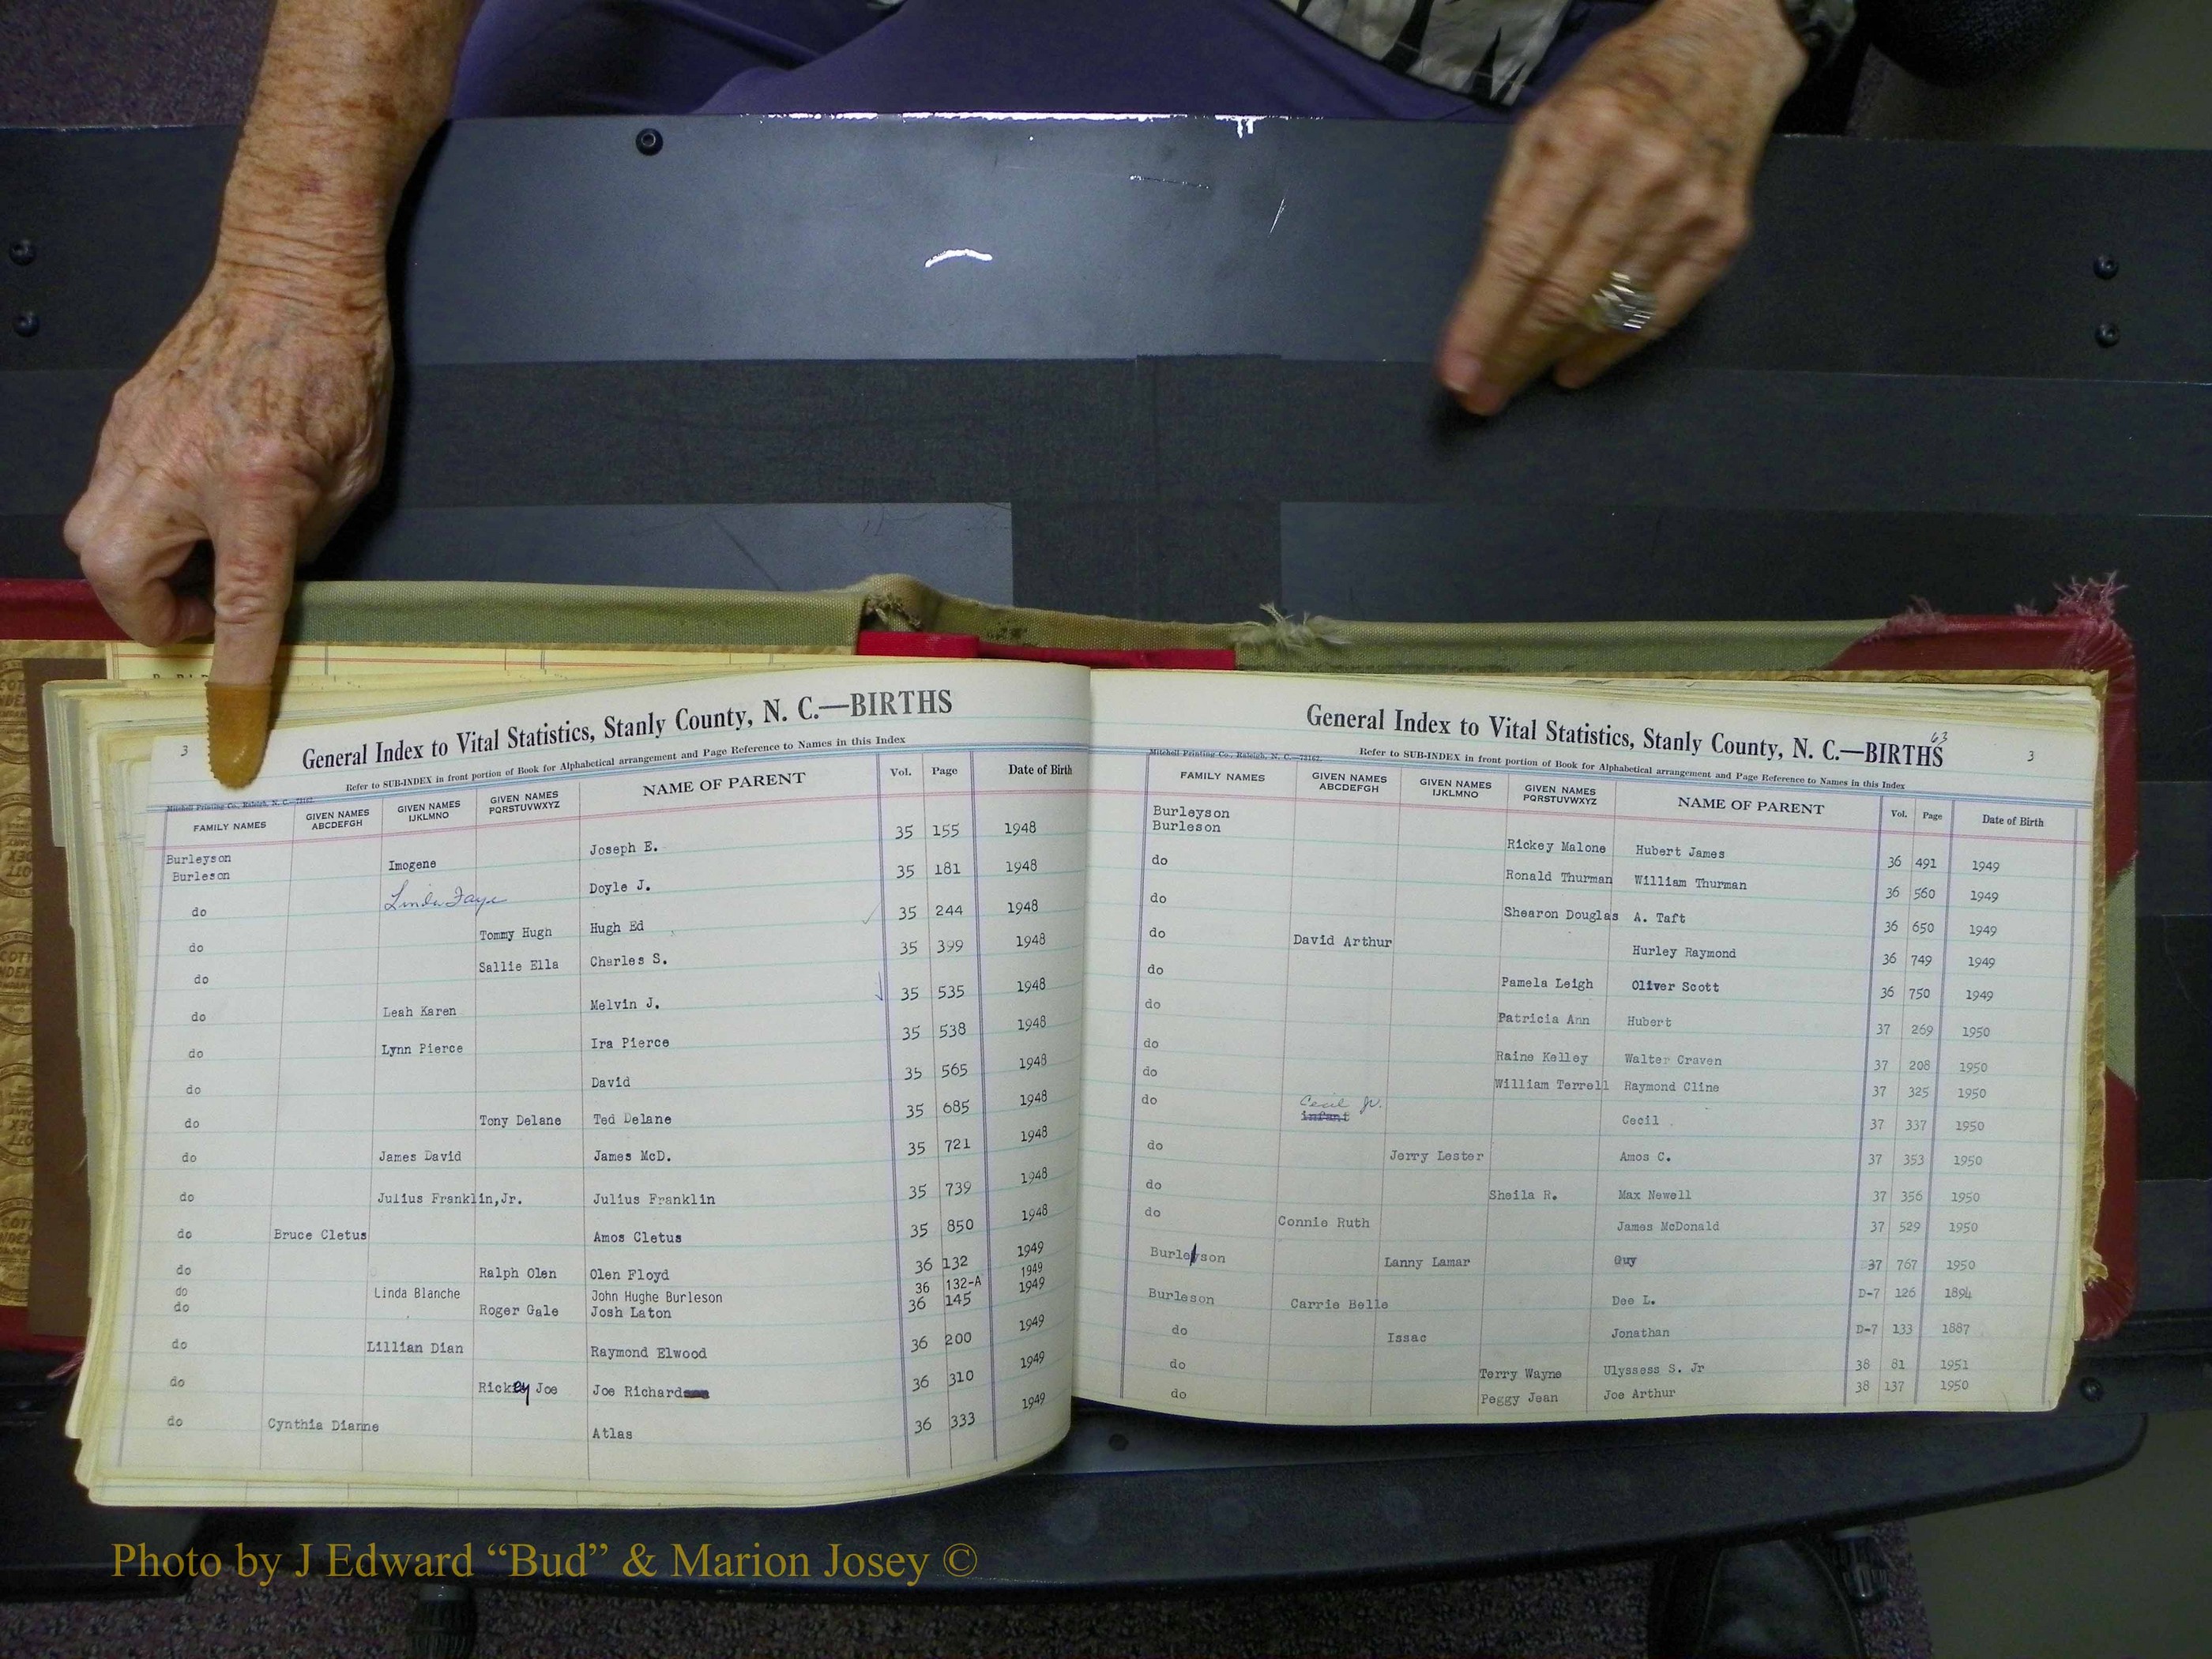 3
General Index to Vital Statistics, Stanly County, N. C.—BIRTHS
Refer to SUB-INDEX in front portion of Book for Alphabetical arrangement and Page Reference to Names in this Index
Mitchell Printing Co., Raleigh, N. C.—73162.
FAMILY NAMES GIVEN NAMES ABCDEFGH GIVEN NAMES IJKLMNO GIVEN NAMES PQRSTUVWXYZ NAME OF PARENT Vol. Page Date of Birth
Burleyson
Burleson Imogene Joseph E. 35 155 1948
do Linda Faye Doyle J. 35 181 1948
do Tommy Hugh Hugh Ed 35 244 1948
do Sallie Ella Charles S. 35 399 1948
do Leah Karen Melvin J. 35 535 1948
do Lynn Pierce Ira Pierce 35 538 1948
do David 35 565 1948
do Tony Delane Ted Delane 35 685 1948
do James David James McD. 35 721 1948
do Julius Franklin,Jr. Julius Franklin 35 739 1948
do Bruce Cletus Amos Cletus 35 850 1948
do Ralph Olen Olen Floyd 36 132 1949
do Linda Blanche John Hughe Burleson 36 132-A 1949
do Roger Gale Josh Laton 36 145 1949
do Lillian Dian Raymond Elwood 36 200 1949
do Rickey Joe Joe Richard 36 310 1949
do Cynthia Dianne Atlas 36 333 1949
63
General Index to Vital Statistics, Stanly County, N. C.—BIRTHS
3
Mitchell Printing Co., Raleigh, N. C.—73162.
Refer to SUB-INDEX in front portion of Book for Alphabetical arrangement and Page Reference to Names in this Index
FAMILY NAMES GIVEN NAMES ABCDEFGH GIVEN NAMES IJKLMNO GIVEN NAMES PQRSTUVWXYZ NAME OF PARENT Vol. Page Date of Birth
Burleyson
Burleson Rickey Malone Hubert James 36 491 1949
do Ronald Thurman William Thurman 36 560 1949
do Shearon Douglas A. Taft 36 650 1949
do David Arthur Hurley Raymond 36 749 1949
do Pamela Leigh Oliver Scott 36 750 1949
do Patricia Ann Hubert 37 269 1950
do Raine Kelley Walter Craven 37 208 1950
do William Terrell Raymond Cline 37 325 1950
do Cecil Jr. infant Cecil 37 337 1950
do Jerry Lester Amos C. 37 353 1950
do Sheila R. Max Newell 37 356 1950
do Connie Ruth James McDonald 37 529 1950
Burleyson Lanny Lamar Guy 37 767 1950
Burleson Carrie Belle Dee L. D-7 126 1894
do Issac Jonathan D-7 133 1887
do Terry Wayne Ulyssess S. Jr 38 81 1951
do Peggy Jean Joe Arthur 38 137 1950
Photo by J Edward “Bud” & Marion Josey ©